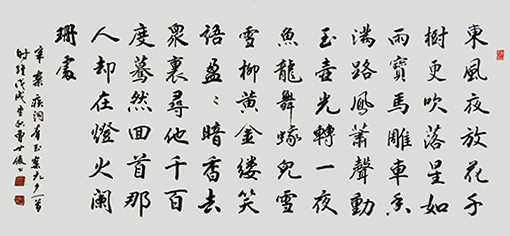 東風夜放花千
樹更吹落星如
雨寶馬雕車香
滿路鳳簫聲動
玉壺光轉一夜
魚龍舞蛾兒雪
雪柳黃金縷笑
語盈〻暗香去
衆裏尋他千百
度驀然回首那
人却在燈火闌
珊處
辛棄疾詞青玉案元夕一首
時維戊戌